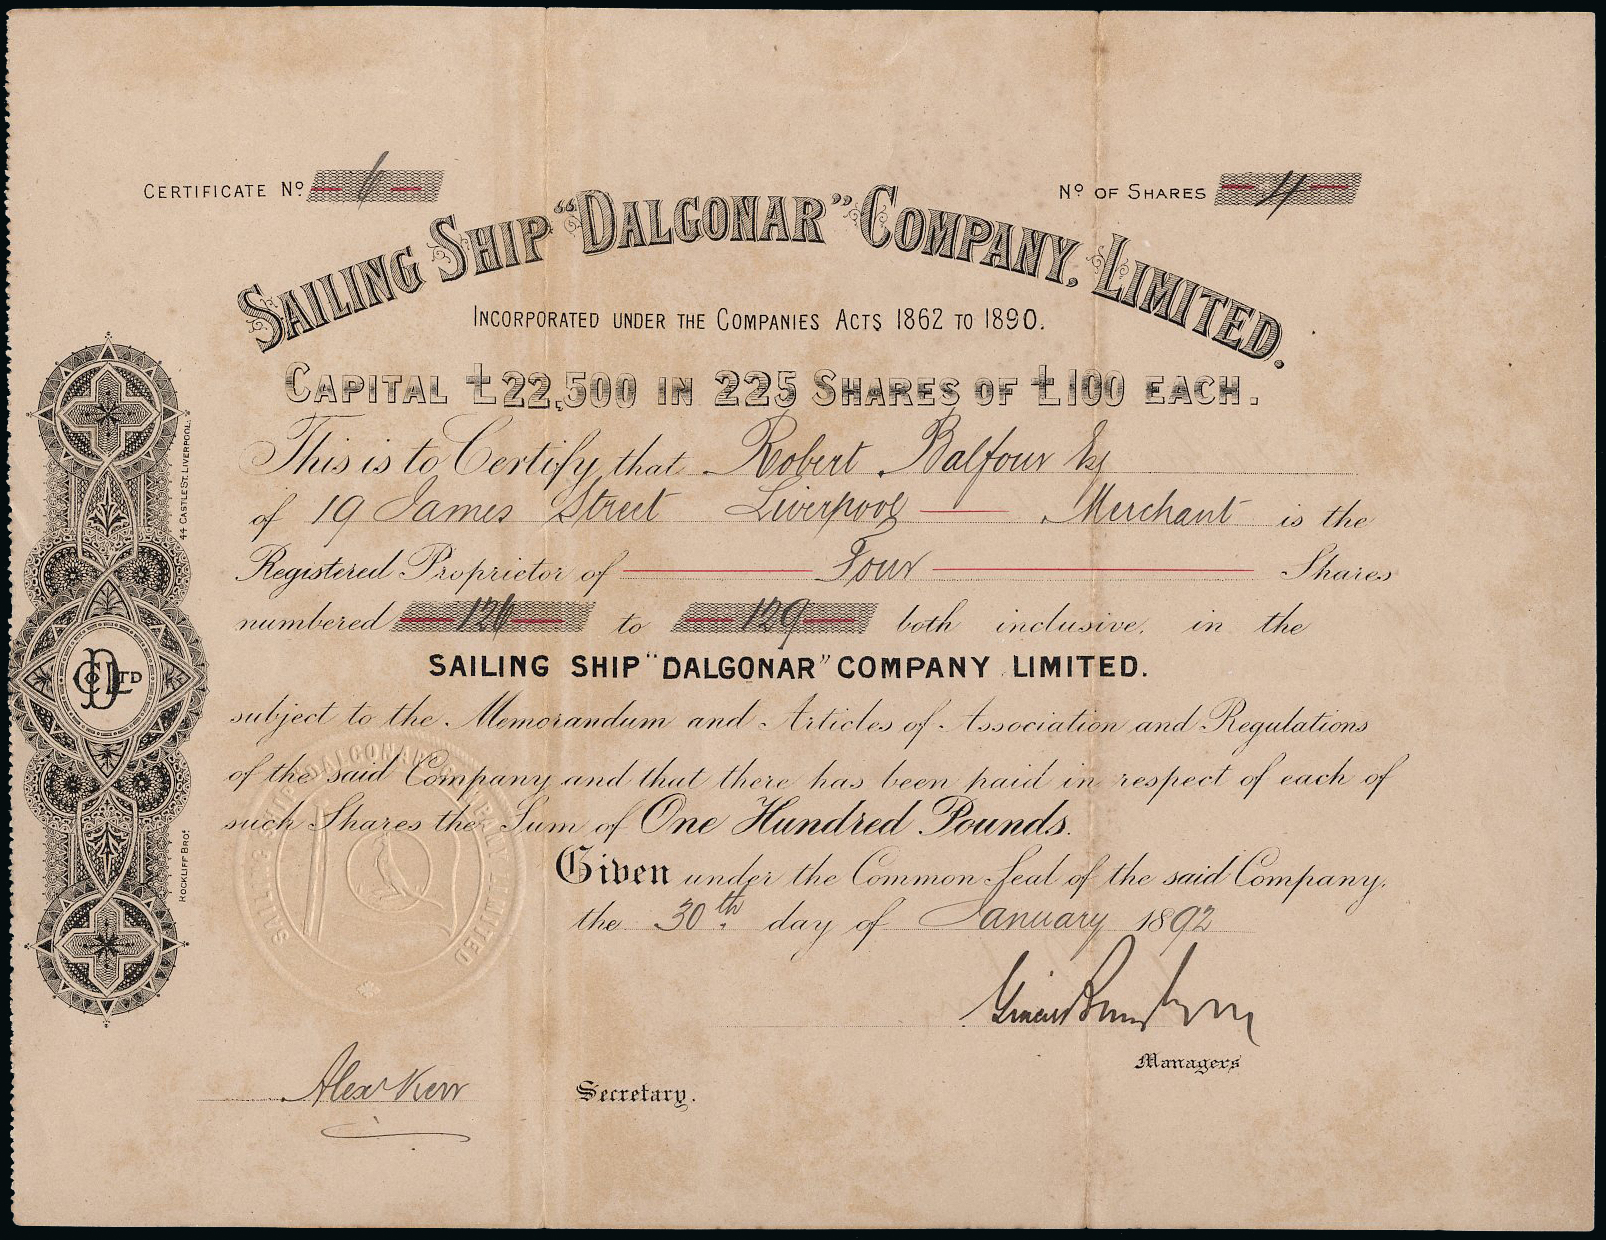 CERTIFICATE No. 6
No. OF SHARES 4
SAILING SHIP "DALGONAR" COMPANY, LIMITED.
INCORPORATED UNDER THE COMPANIES ACTS 1862 TO 1890.
CAPITAL £22,500 IN 225 SHARES OF £100 EACH.
This is to Certify that Robert Balfour Esq
of 19 James Street Liverpool — Merchant is the
Registered Proprietor of — Four — Shares
numbered — 126 — to — 129 — both inclusive, in the
SAILING SHIP "DALGONAR" COMPANY LIMITED.
subject to the Memorandum and Articles of Association and Regulations
of the said Company and that there has been paid in respect of each of
such Shares the Sum of One Hundred Pounds.
Given under the Common Seal of the said Company,
the 30th day of January 1892
Managers
Alexr Kerr Secretary.
SAILING SHIP DALGONAR COMPANY LIMITED
DCo LTD
HOCKLIFF BROs. 44 CASTLE ST. LIVERPOOL.